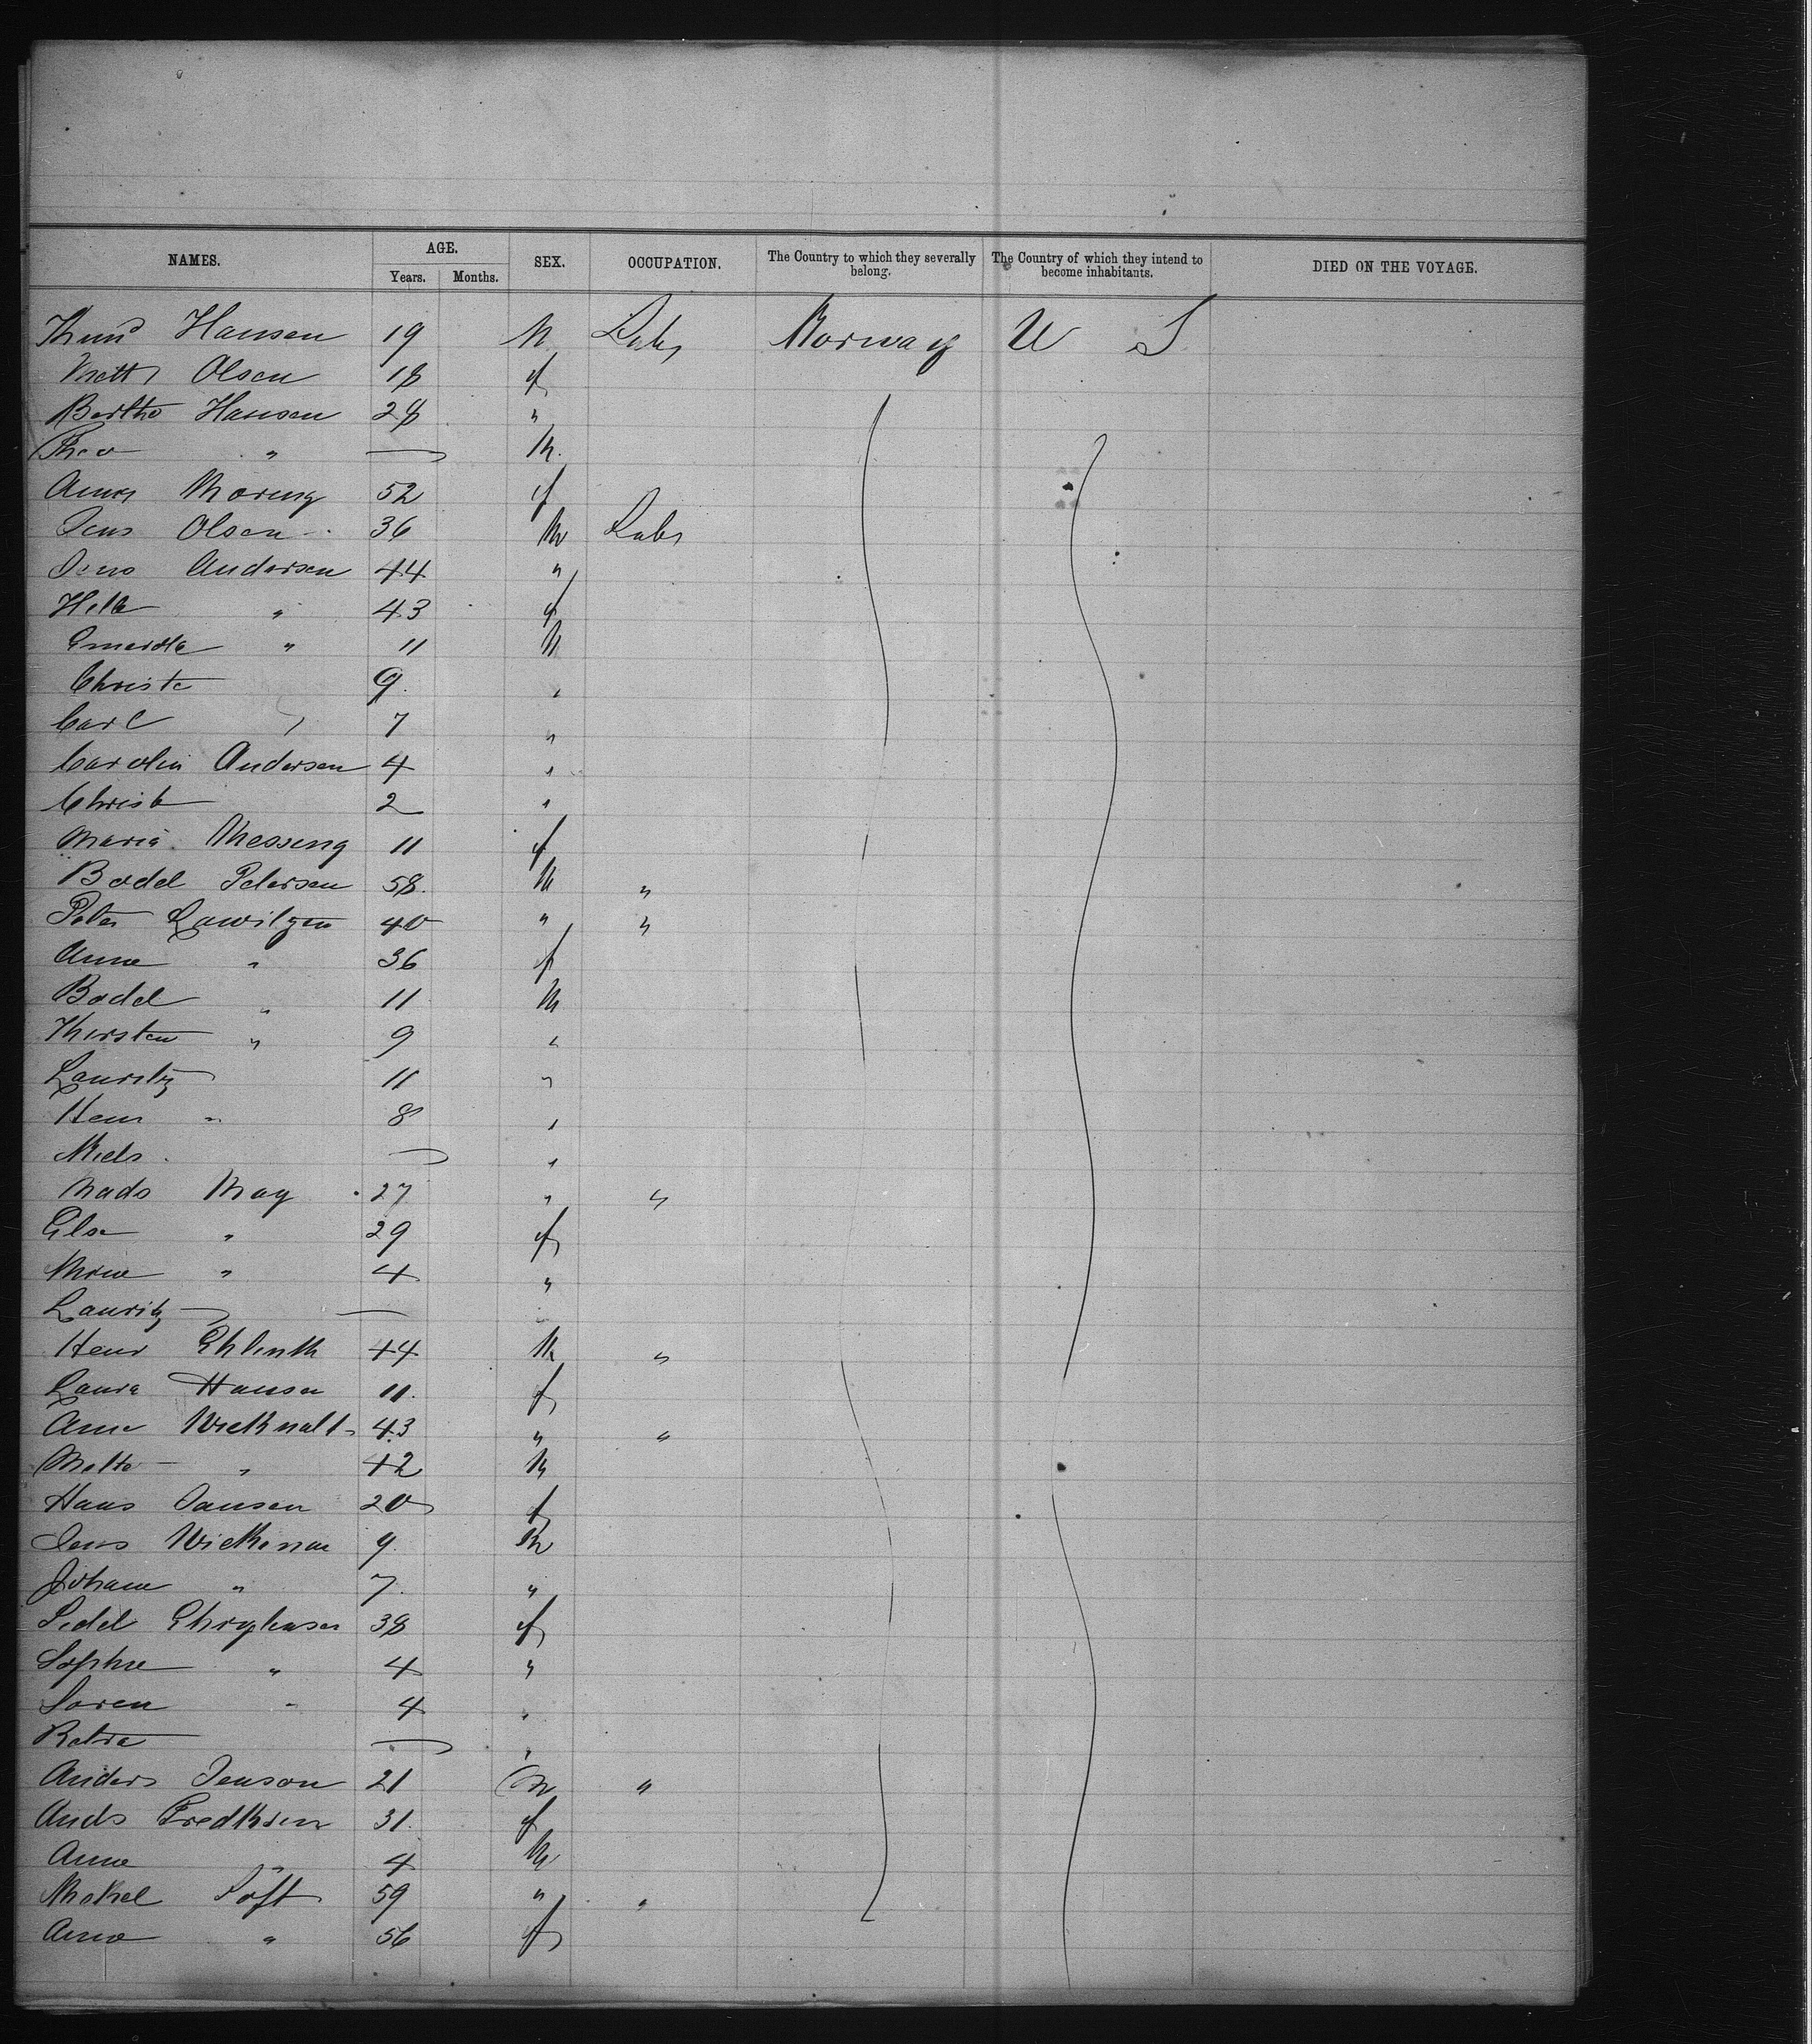 NAMES. AGE. SEX. OCCUPATION. The Country to which they severally belong. The Country of which they intend to become inhabitants. DIED ON THE VOYAGE.
Years. Months.
Knud Hansen 19 M Labr Norway U S
Mett Olsen 18 f
Berthe Hansen 28 "
Theo " — M.
Anna Moring 52 f
Jens Olsen 36 M Labr
Jens Andersen 44 "
Helle " 43 f
" 11 M
Christe 9 "
Carl " 7 "
Carolin Andersen 4 "
Christe 2 "
Maria Messing 11 f
Bodel Petersen 58 M "
Peter Lawitzen 40 " "
Anne " 36 f
Bodel " 11 M
Kirsten " 9 "
Lauritz 11 "
Hen " 8 "
Niels — "
Mads May 27 " "
Else " 29 f
" 4 "
Lauritz —
Henr 44 M "
Laura Hansen 11 f
Ane 43 " "
Mette " 42 M
Hans Jansen 20 f
Jens 9 M
Johane " 7 "
Sidel 38 f
Sophie " 4 "
Soren " 4 "
—
Anders Jenson 21 M "
Ands Fredksen 31 f
Anne " 4 M
Mikkel Toft 59 " "
Anne " 56 f